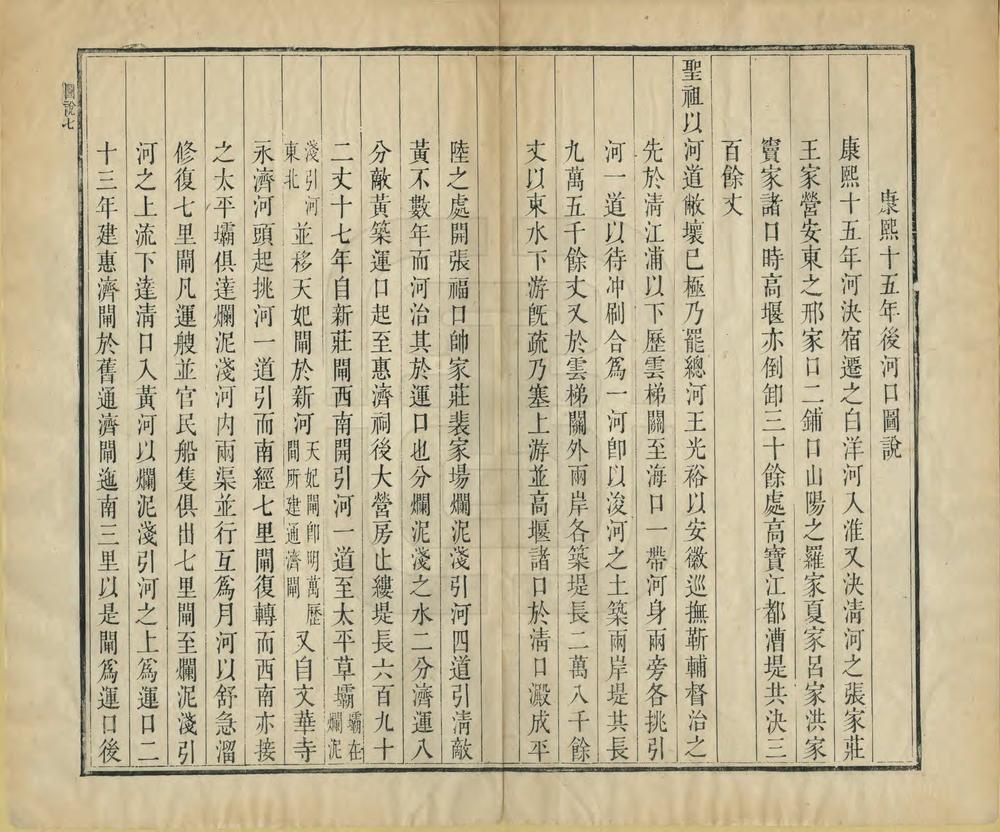 康熙十五年後河口圖說
康熙十五年河決宿遷之白洋河入淮又決淸河之張家莊
王家營安東之邢家口二鋪口山陽之羅家夏家呂家洪家
竇家諸口時高堰亦倒卸三十餘處高寶江都漕堤共決三
百餘丈
聖祖以河道敝壞已極乃罷總河王光裕以安徽巡撫靳輔督治之
先於淸江浦以下歷雲梯關至海口一帶河身兩旁各挑引
河一道以待冲刷合爲一河卽以浚河之土築兩岸堤共長
九萬五千餘丈又於雲梯關外兩岸各築堤長二萬八千餘
丈以束水下游旣疏乃塞上游並高堰諸口於淸口澱成平
陸之處開張福口帥家莊裴家場爛泥淺引河四道引淸敵
黃不數年而河治其於運口也分爛泥淺之水二分濟運八
分敵黃築運口起至惠濟祠後大營房止縷堤長六百九十
二丈十七年自新莊閘西南開引河一道至太平草壩壩在爛泥
淺引河東北並移天妃閘於新河天妃閘卽明萬歷間所建通濟閘又自文華寺
永濟河頭起挑河一道引而南經七里閘復轉而西南亦接
之太平壩俱達爛泥淺河內兩渠並行互爲月河以舒急溜
修復七里閘凡運艘並官民船隻俱出七里閘至爛泥淺引
河之上流下達淸口入黃河以爛泥淺引河之上爲運口二
十三年建惠濟閘於舊通濟閘迤南三里以是閘爲運口後
圖說七